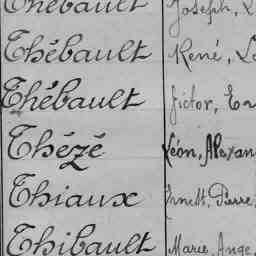 Thébault Joseph,
Thébault René,
Thébault Victor,
Thézé Léon, Alexan
Thiaux Pierre
Thibault Marie, Ange